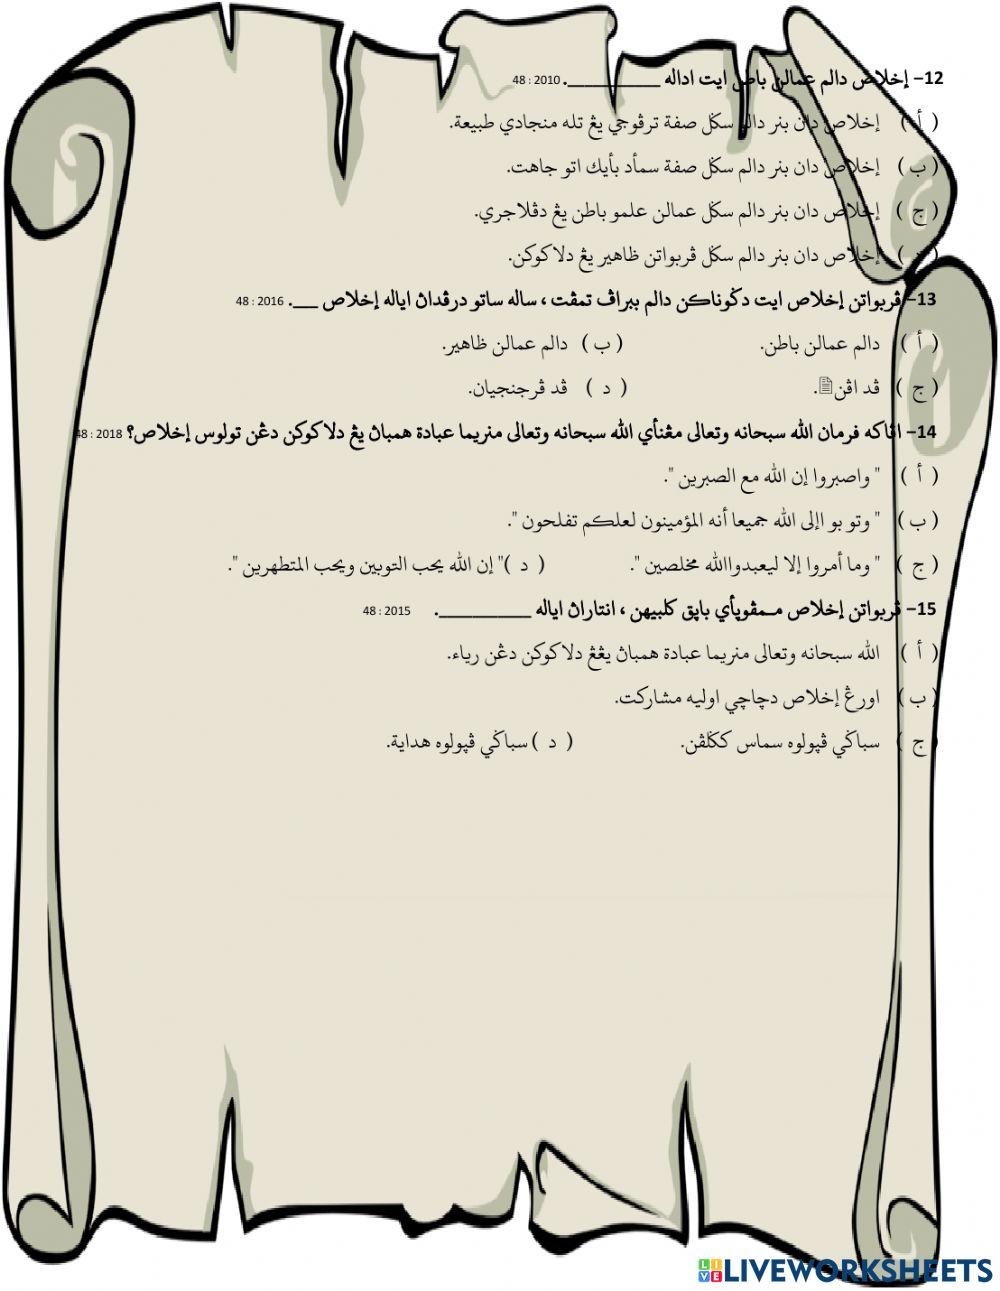 12– إخلاص دالم عمالن باطن ايت اداله ___________. 2010 : 48
( أ ) إخلاص دان بنر دالم سݢل صفة ترڤوجي يڠ تله منجادي طبيعة.
( ب ) إخلاص دان بنر دالم سݢل صفة سمأد بأيك اتو جاهت.
( ج ) إخلاص دان بنر دالم سݢل عمالن علمو باطن يڠ دڤلاجري.
( د ) إخلاص دان بنر دالم سݢل ڤربواتن ظاهير يڠ دلاكوكن.
13– ڤربواتن إخلاص ايت دݢوناكن دالم ببراڤ تمڤت ، ساله ساتو درڤداڽ اياله إخلاص ___. 2016 : 48
( أ ) دالم عمالن باطن. ( ب ) دالم عمالن ظاهير.
( ج ) ڤد اڤن. ( د ) ڤد ڤرجنجيان.
14– اڤاكه فرمان الله سبحانه وتعالى مڠنأي الله سبحانه وتعالى منريما عبادة همباڽ يڠ دلاكوكن دڠن تولوس إخلاص؟ 2018 : 48
( أ ) " واصبروا إن الله مع الصبرين ".
( ب ) " وتو بو اإلى الله جميعا أنه المؤمينون لعلكم تفلحون ".
( ج ) " وما أمروا إلا ليعبدواالله مخلصين ". ( د )" إن الله يحب التوبين ويحب المتطهرين ".
15– ڤربواتن إخلاص ممڤوڽأي باڽق كلبيهن ، انتاراڽ اياله ___________. 2015 : 48
( أ ) الله سبحانه وتعالى منريما عبادة همباڽ يڠڠ دلاكوكن دڠن رياء.
( ب ) اورڠ إخلاص دچاچي اوليه مشاركت.
( ج ) سباݢي ڤپولوه سماس ككلڤن. ( د ) سباݢي ڤپولوه هداية.
LIVEWORKSHEETS